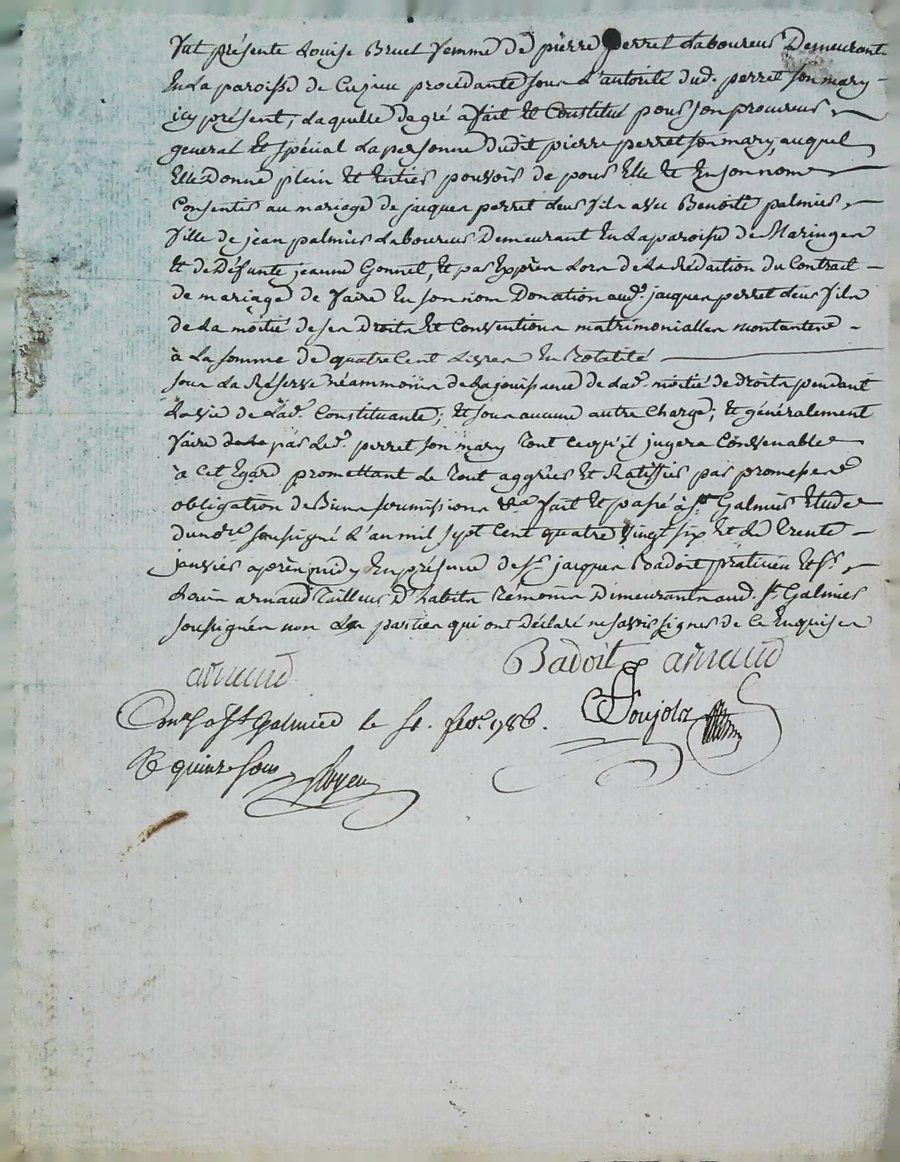 fut présente Louise Bruel femme de pierre perret Laboureur Demeurant
En La paroisse de Cuzieu procedante sous L'autorité dud. perret son mary
icy présent, Laquelle de gré a fait et Constitué pour son procureur
general Et spécial La personne dudit pierre perret son mary, auquel
Elle Donne plein Et Entier pouvoir de pour Elle Et En son nom
Consentir au mariage de jacques perret Leur fils avec Benoite palmier
fille de jean palmier Laboureur Demeurant En La paroisse de Maringes
Et de Défunte jeanne Gonnet, Et par Exprès Lors de La Rédaction du Contrait
de mariage de faire En son nom Donation aud. jacques perret Leur fils
de La moitié de ses Droits Et Conventions matrimonialles montantes
à La somme de quatre Cent Livres En Totalité
sous La Réserve néammoins de La jouissance de lad. moitié de droits pendant
La vie de Lad. Constituante; Et sous aucune autre Charge; Et généralement
faire par Led. perret son mary Tout ce qu'il jugera Convenable
à Cet Egard promettant de Tout aggréer Et Ratiffier par promesse
obligation de Biens soumissions &a fait Et passé à st. Galmier Etude
du no.re soussigné L'an mil sept Cent quatre vingt six Et le Trente
janvier après midy En présence de sr. jacques Badoit praticien Et sr.
Louis arnaud Tailleur D'habits Témoins Demeurants aud. st. Galmier
soussignés non Les parties qui ont déclaré ne savoir signer de ce Enquises
arnaud Badoit arnaud
Poujols
Con.lé a st Galmier le fevr. 1786.
R quinze sous